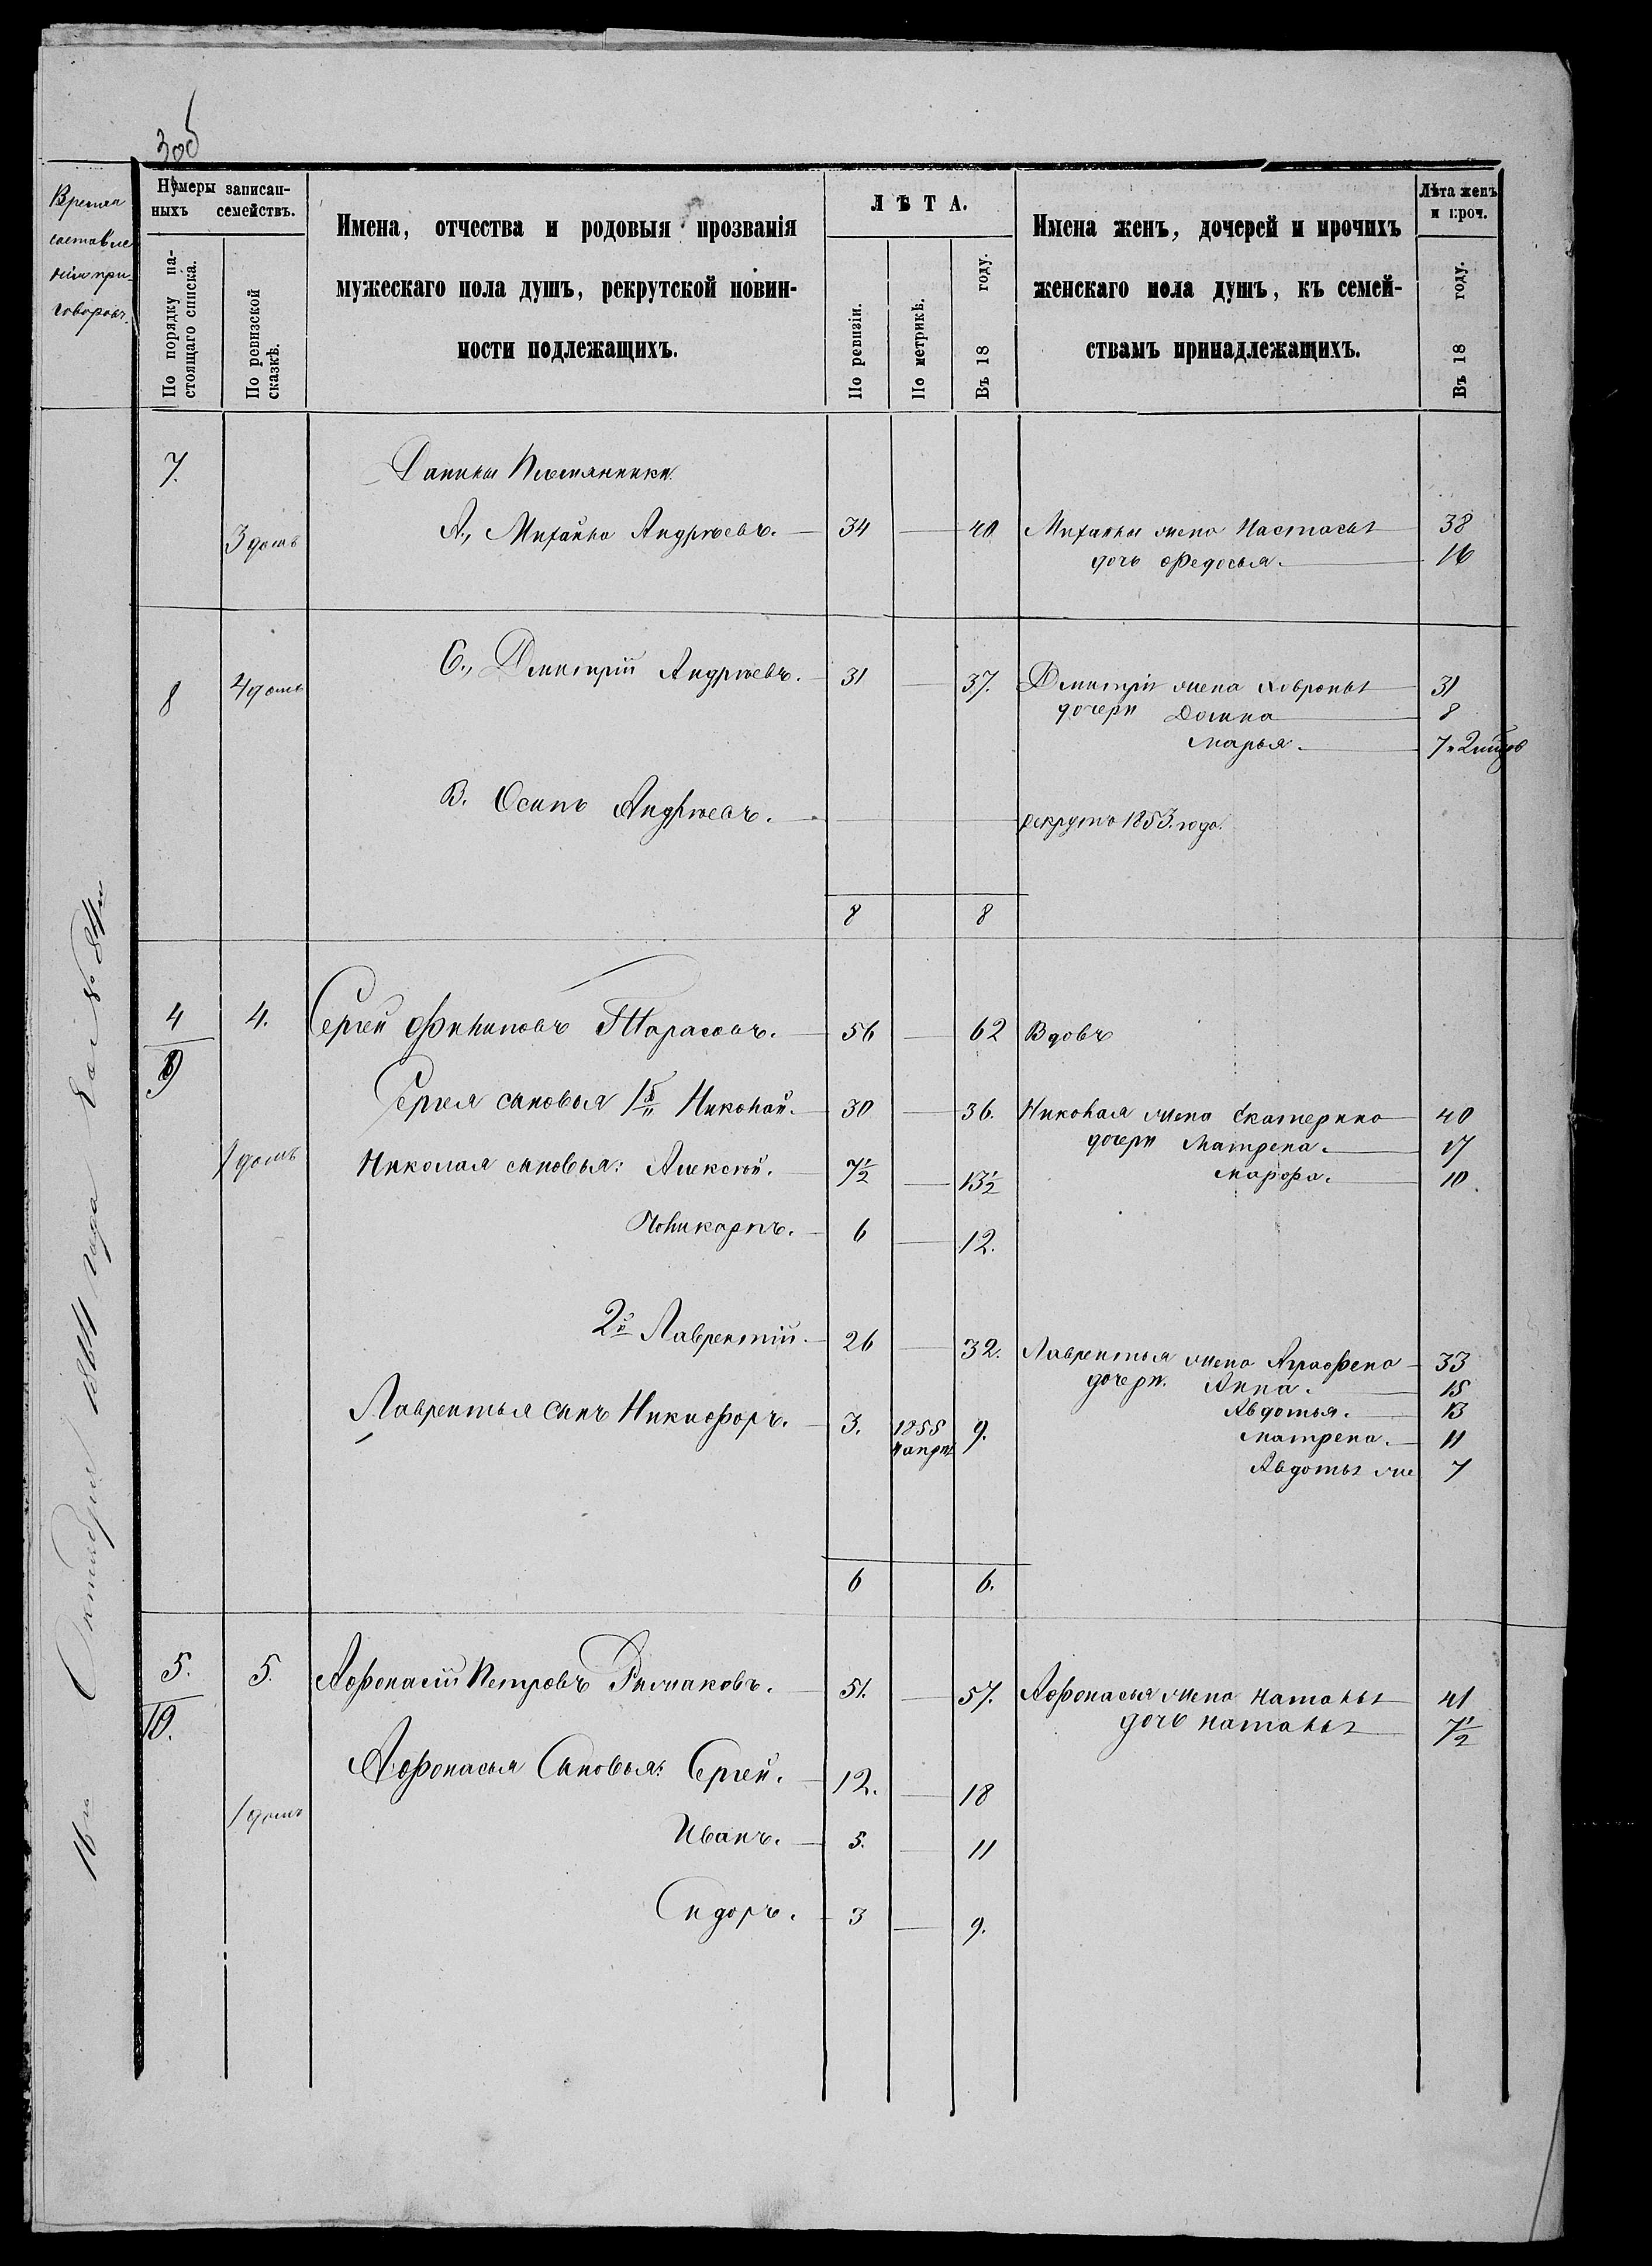 30об
Время
составле
нія при-
говоровъ.
Нумеры записан-
ныхъ семействъ.
По порядку на-
стоящаго списка.
По ревизской
сказкѣ.
Имена, отчества и родовыя прозванія
мужескаго пола душъ, рекрутской повин-
ности подлежащихъ.
ЛѢТА.
По ревизіи.
По метрикѣ.
Въ 18 году.
Имена женъ, дочерей и прочихъ
женскаго пола душъ, къ семей-
ствамъ принадлежащихъ.
Лѣта женъ
и проч.
Въ 18 году.
16го Октября 1864 года
7. Племянники
3 домъ А., Михайла Андрѣевъ. 34 40 Михайлы жена Настасья 38
дочь Федосья. 16
8 4 домъ Б., Дмитрій Андрѣевъ. 31 37. Дмитрія жена Хавронья 31
дочери Домна 8
Марья. 7
В. Осипъ Андрѣевъ. рекрутъ 1853. года.
8 8
4 4. Сергей Филиповъ Тарасовъ. 56 62 Вдовъ
9
Сергея сыновья 1й Николай. 30 36. Николая жена Екатерина 40
дочери Матрена. 17
1 домъ Николая сыновья: Алексѣй. 7½ 13½ Марфа. 10
Поликарпъ. 6 12.
2й Лаврентій. 26 32. Лаврентья жена Аграфена 33
дочери. Анна. 15
Авдотья. 13
Лаврентья сынъ Никифоръ. 3. 1855 9. Матрена. 11
Авдотья 7
6 6.
5. 5. Афонасій Петровъ 51. 57. Афонасья жена Наталья 41
10. дочь Наталья 7½
Афонасья Сыновья: Сергей. 12. 18
1 домъ Иванъ. 5. 11
Сидоръ. 3 9.